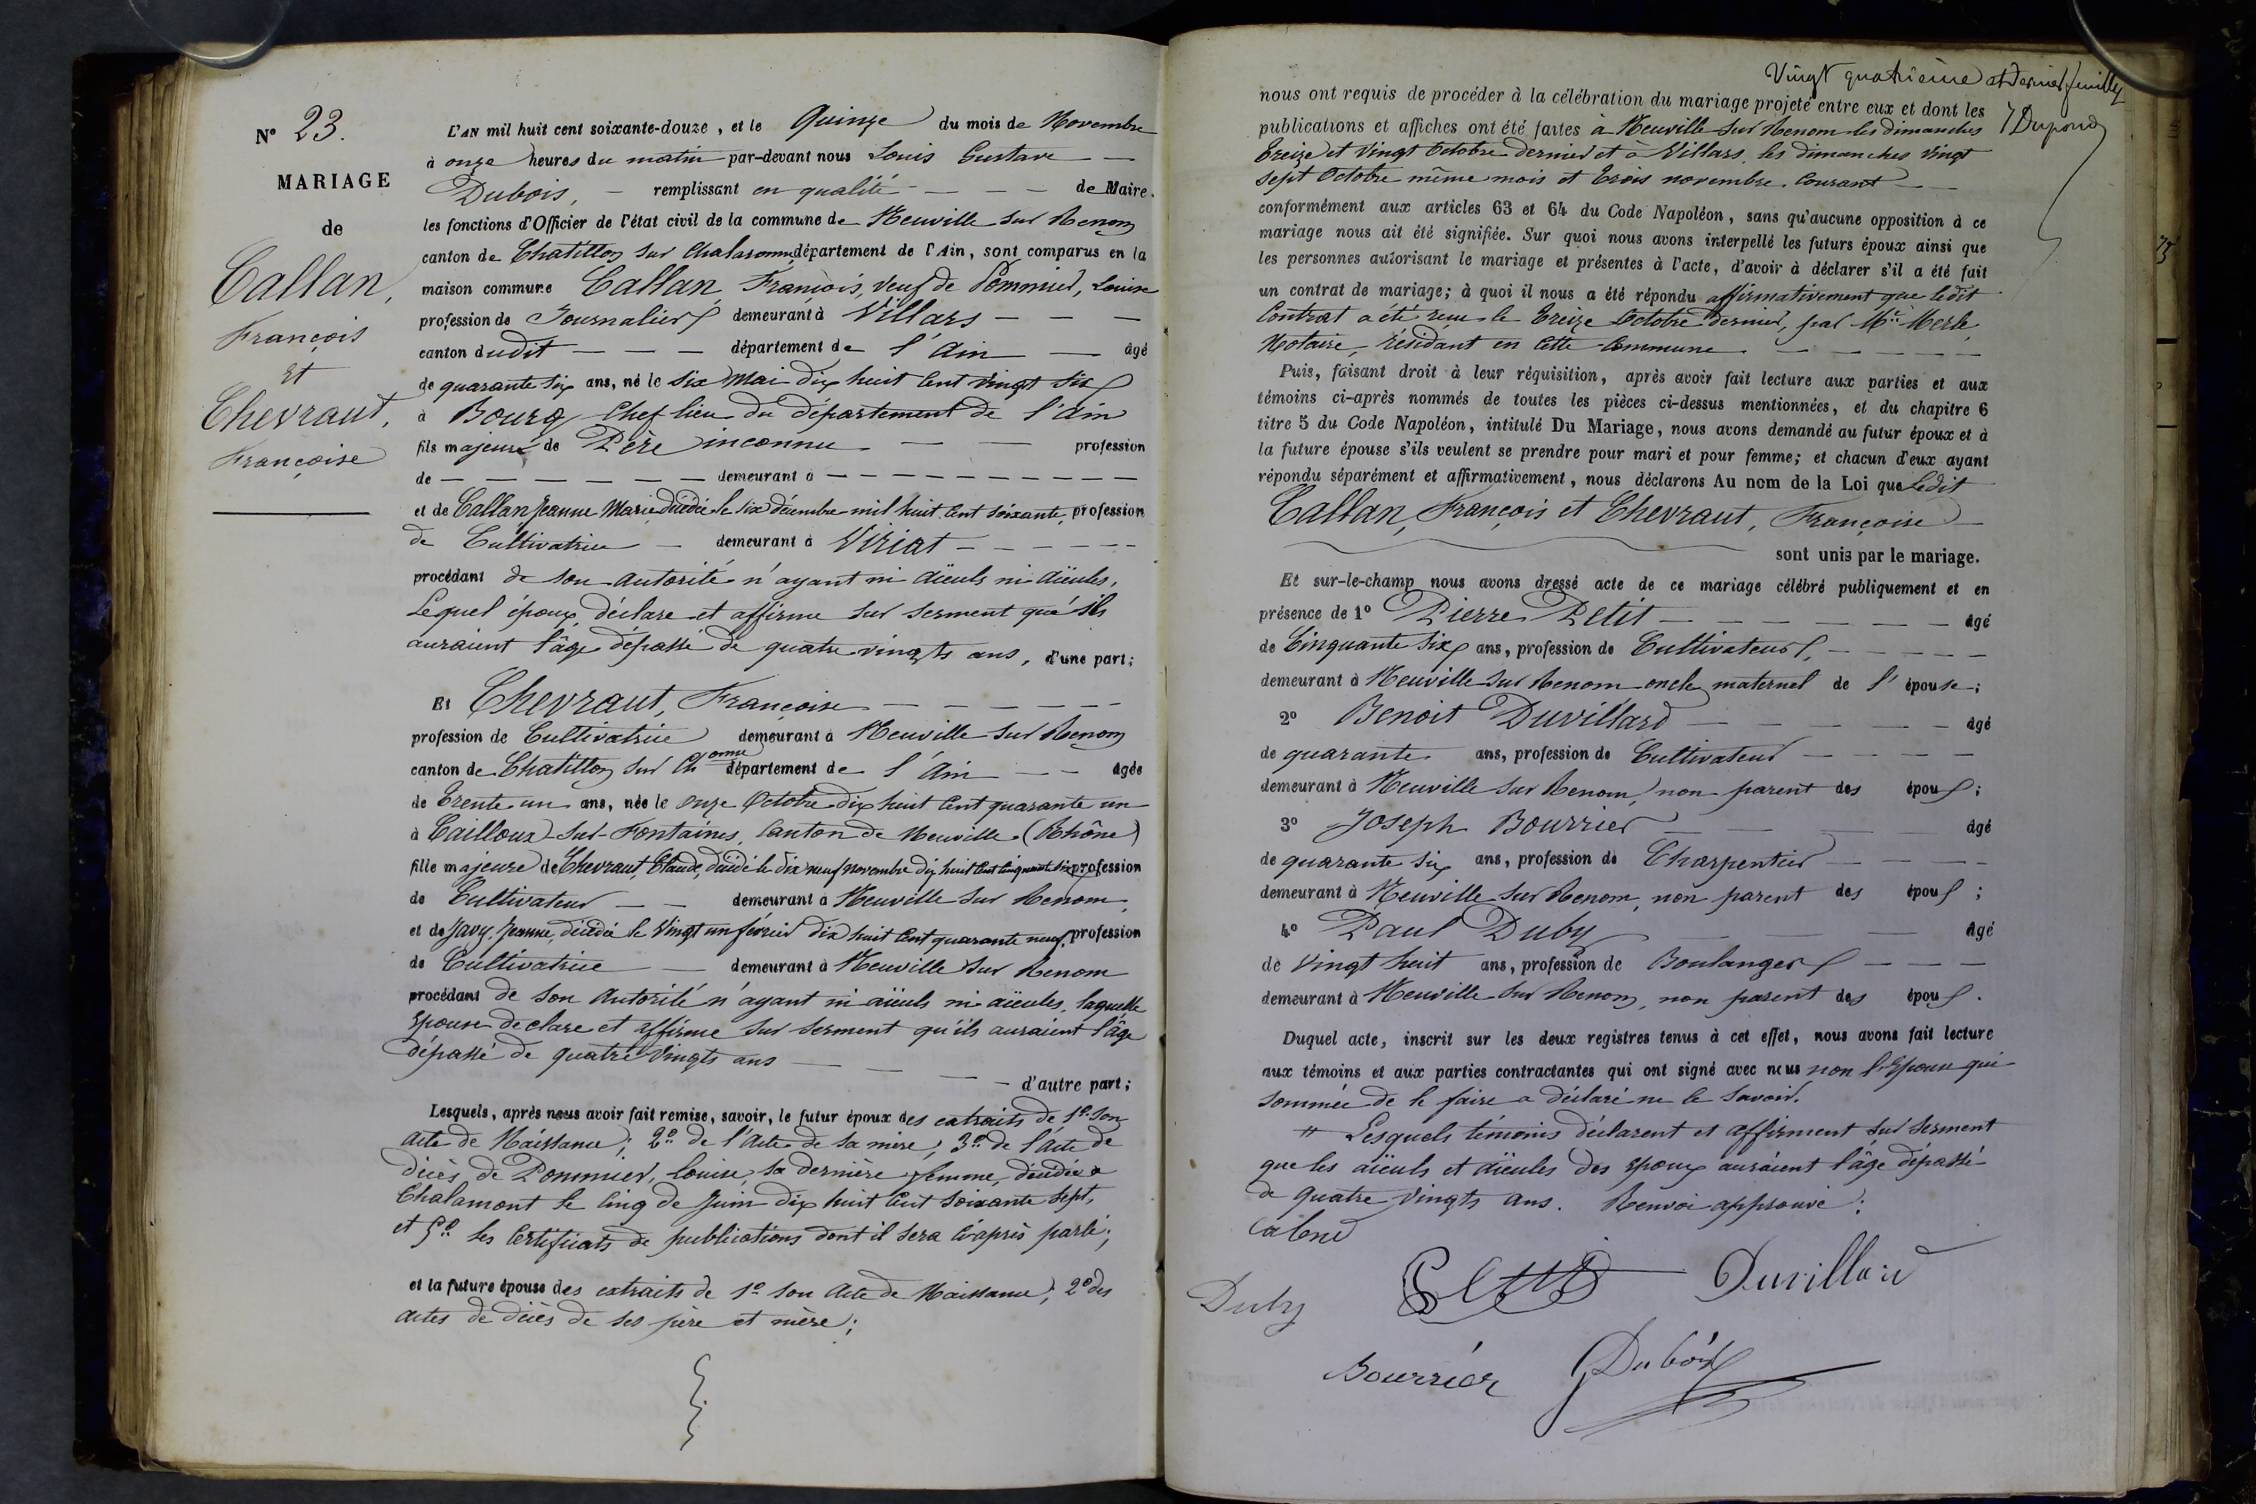 N° 23.
MARIAGE
de
Callan,
François
et
Chevraut,
Françoise
L'AN mil huit cent soixante-douze, et le Quinze du mois de Novembre
à onze heures du matin par-devant nous Louis Gustave
Dubois, remplissant en qualité de Maire.
les fonctions d'Officier de l'état civil de la commune de Neuville sur Renom
canton de Chatillon sur Chalaronne département de l'Ain, sont comparus en la
maison commune Callan, François, veuf de Pommier, Louise
profession de Journalier demeurant à Villars
canton dudit département de l'Ain âgé
de quarante six ans, né le six Mai dix huit cent vingt six
à Bourg Chef lieu du département de l'Ain
fils majeur de Père inconnu profession
de demeurant à
et de Callan Jeanne Marie décédée le six décembre mil huit cent soixante, profession
de Cultivatrice demeurant à Viriat
procédant de son autorité n'ayant ni aïeuls ni aïeules,
Lequel époux déclare et affirme sur serment que ils
auraient l'âge dépassé de quatre vingts ans, d'une part;
Et Chevraut, Françoise
profession de Cultivatrice demeurant à Neuville sur Renom
canton de Chatillon sur Chonne département de l'Ain âgée
de trente un ans, née le onze Octobre dix huit cent quarante un
à Cailloux-sur-Fontaines, canton de Neuville (Rhône)
fille majeure de Chevraut, Claude, décédé le dix neuf novembre dix huit cent cinquante six profession
de Cultivateur demeurant à Neuville sur Renom,
et de Javy, Jeanne, décédée le vingt un février dix huit cent quarante neuf, profession
de Cultivatrice demeurant à Neuville sur Renom
procédant de son autorité n'ayant ni aïeuls ni aïeules, laquelle
épouse declare et affirme sur serment qu'ils auraient l'âge
dépassé de quatre vingts ans
d'autre part;
Lesquels, après nous avoir fait remise, savoir, le futur époux des extraits de 1° son
acte de Naissance; 2° de l'acte de sa mère; 3° de l'acte de
décès de Pommier, Louise, sa dernière femme, décédée à
Chalamont le cinq de Juin dix huit cent soixante sept,
et 5° les certificats de publications dont il sera ci-après parlé;
et la future épouse des extraits de 1° son acte de Naissance; 2° des
actes de décès de ses père et mère;
Vingt quatrième et dernier feuillet
Dupond
nous ont requis de procéder à la célébration du mariage projeté entre eux et dont les
publications et affiches ont été faites à Neuville sur Renom les dimanches
treize et vingt octobre dernier et à Villars, les dimanches vingt
sept Octobre même mois et trois novembre courant
conformément aux articles 63 et 64 du Code Napoléon, sans qu'aucune opposition à ce
mariage nous ait été signifiée. Sur quoi nous avons interpellé les futurs époux ainsi que
les personnes autorisant le mariage et présentes à l'acte, d'avoir à déclarer s'il a été fait
un contrat de mariage; à quoi il nous a été répondu affirmativement que ledit
Contrat a été reçu le treize Octobre dernier, par Me Merle,
Notaire, résidant en cette Commune
Puis, faisant droit à leur réquisition, après avoir fait lecture aux parties et aux
témoins ci-après nommés de toutes les pièces ci-dessus mentionnées, et du chapitre 6
titre 5 du Code Napoléon, intitulé Du Mariage, nous avons demandé au futur époux et à
la future épouse s'ils veulent se prendre pour mari et pour femme; et chacun d'eux ayant
répondu séparément et affirmativement, nous déclarons Au nom de la Loi que ledit
Callan, François et Chevraut, Françoise
sont unis par le mariage.
Et sur-le-champ nous avons dressé acte de ce mariage célébré publiquement et en
présence de 1° Pierre Petit âgé
de Cinquante six ans, profession de Cultivateur,
demeurant à Neuville sur Renom oncle maternel de l'épouse;
2° Benoit Duvillard âgé
de quarante ans, profession de Cultivateur
demeurant à Neuville sur Renom, non parent des époux;
3° Joseph Bourrier âgé
de quarante six ans, profession de Charpentier
demeurant à Neuville sur Renom, non parent des époux;
4° Paul Duby âgé
de vingt huit ans, profession de Boulanger
demeurant à Neuville sur Renom, non parent des époux.
Duquel acte, inscrit sur les deux registres tenus à cet effet, nous avons fait lecture
aux témoins et aux parties contractantes qui ont signé avec nous non l'Epouse qui
sommée de le faire a déclaré ne le savoir.
" Lesquels témoins déclarent et affirment sur serment
que les aïeuls et aïeules des époux auraient l'âge dépassé
de quatre vingts ans. Renvoi approuvé:
Duvillard
Duby
Bourrier Dubois